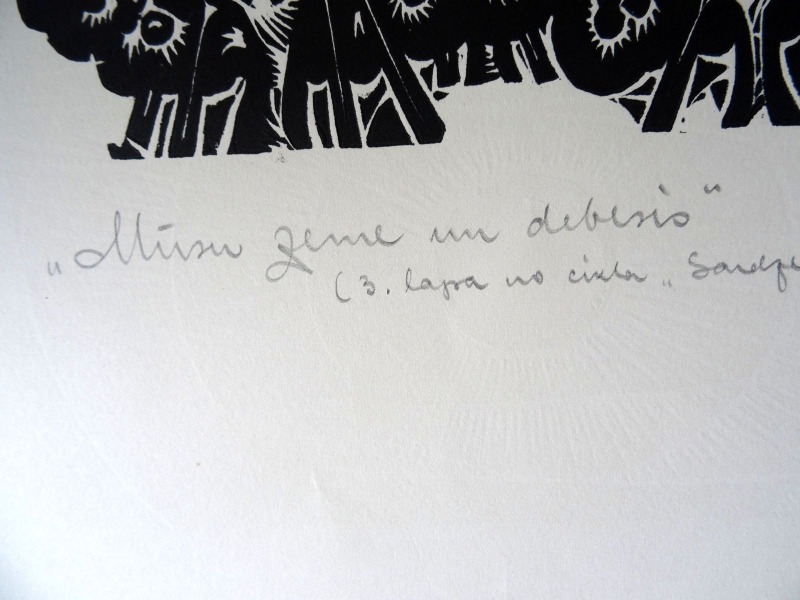 „Mūsu zeme un debesis“
(3. lapa no cikla „